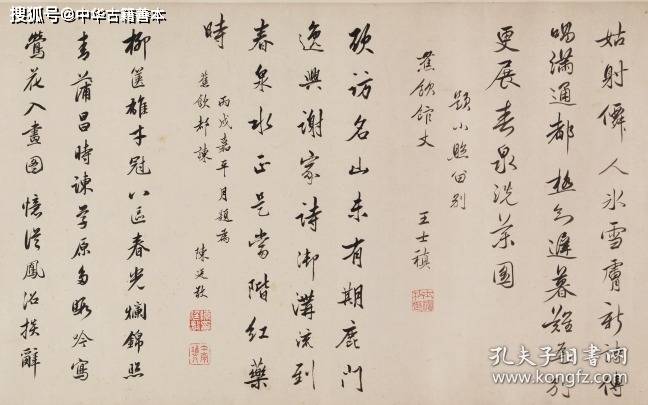 搜狐号@中华古籍善本
姑射僊人氷雪膚新詩傳
唱滿通都極知遲暮難為別
更展春泉洗藥圖
題小照留別
蕉飲館丈 王士禛
欲訪名山未有期鹿門
逸興謝家詩御溝流到
春泉水正是當階紅藥
時
丙戌嘉平月題為
蕉飲都諫 陳廷敬
柳篋雄才冠八區春光爛錦照
青蒲昌時諫草原多暇吟寫
鶯花入畫圖 憶從鳳沼掞辭
孔夫子旧书网